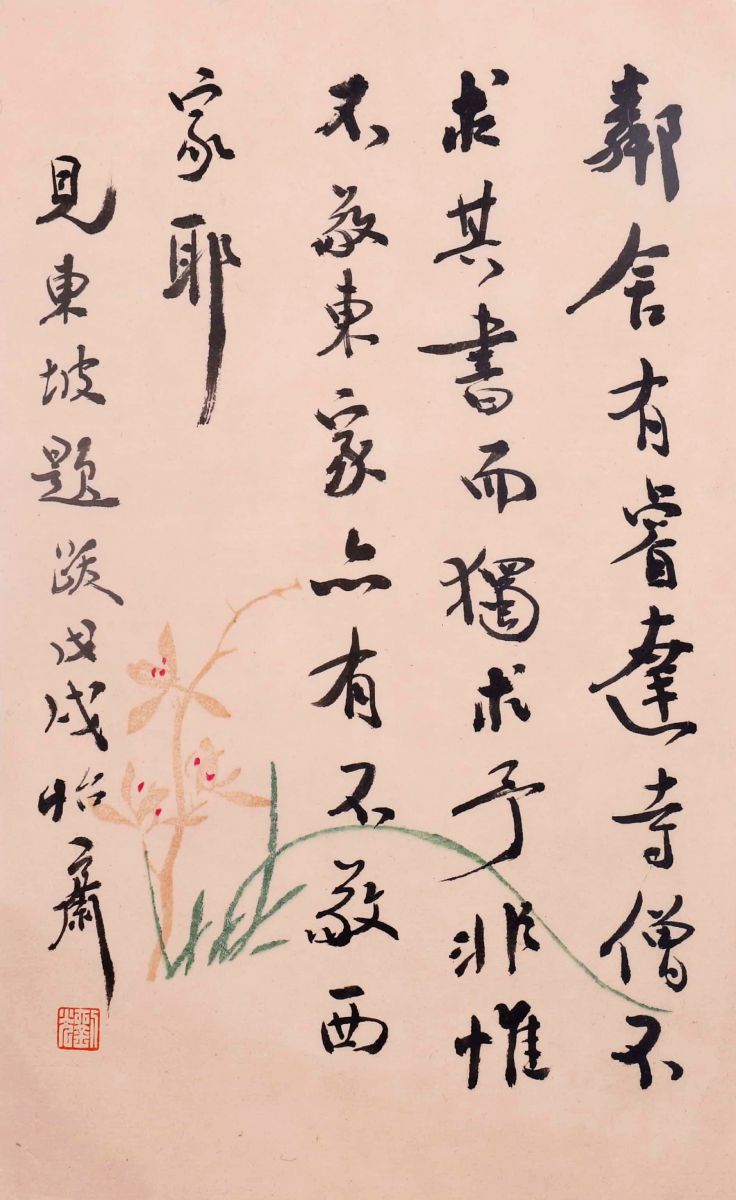 鄰舍有睿達寺僧不
求其書而獨求予非惟
不敬東家亦有不敬西
家耶
見東坡題跋戊戌怡齋